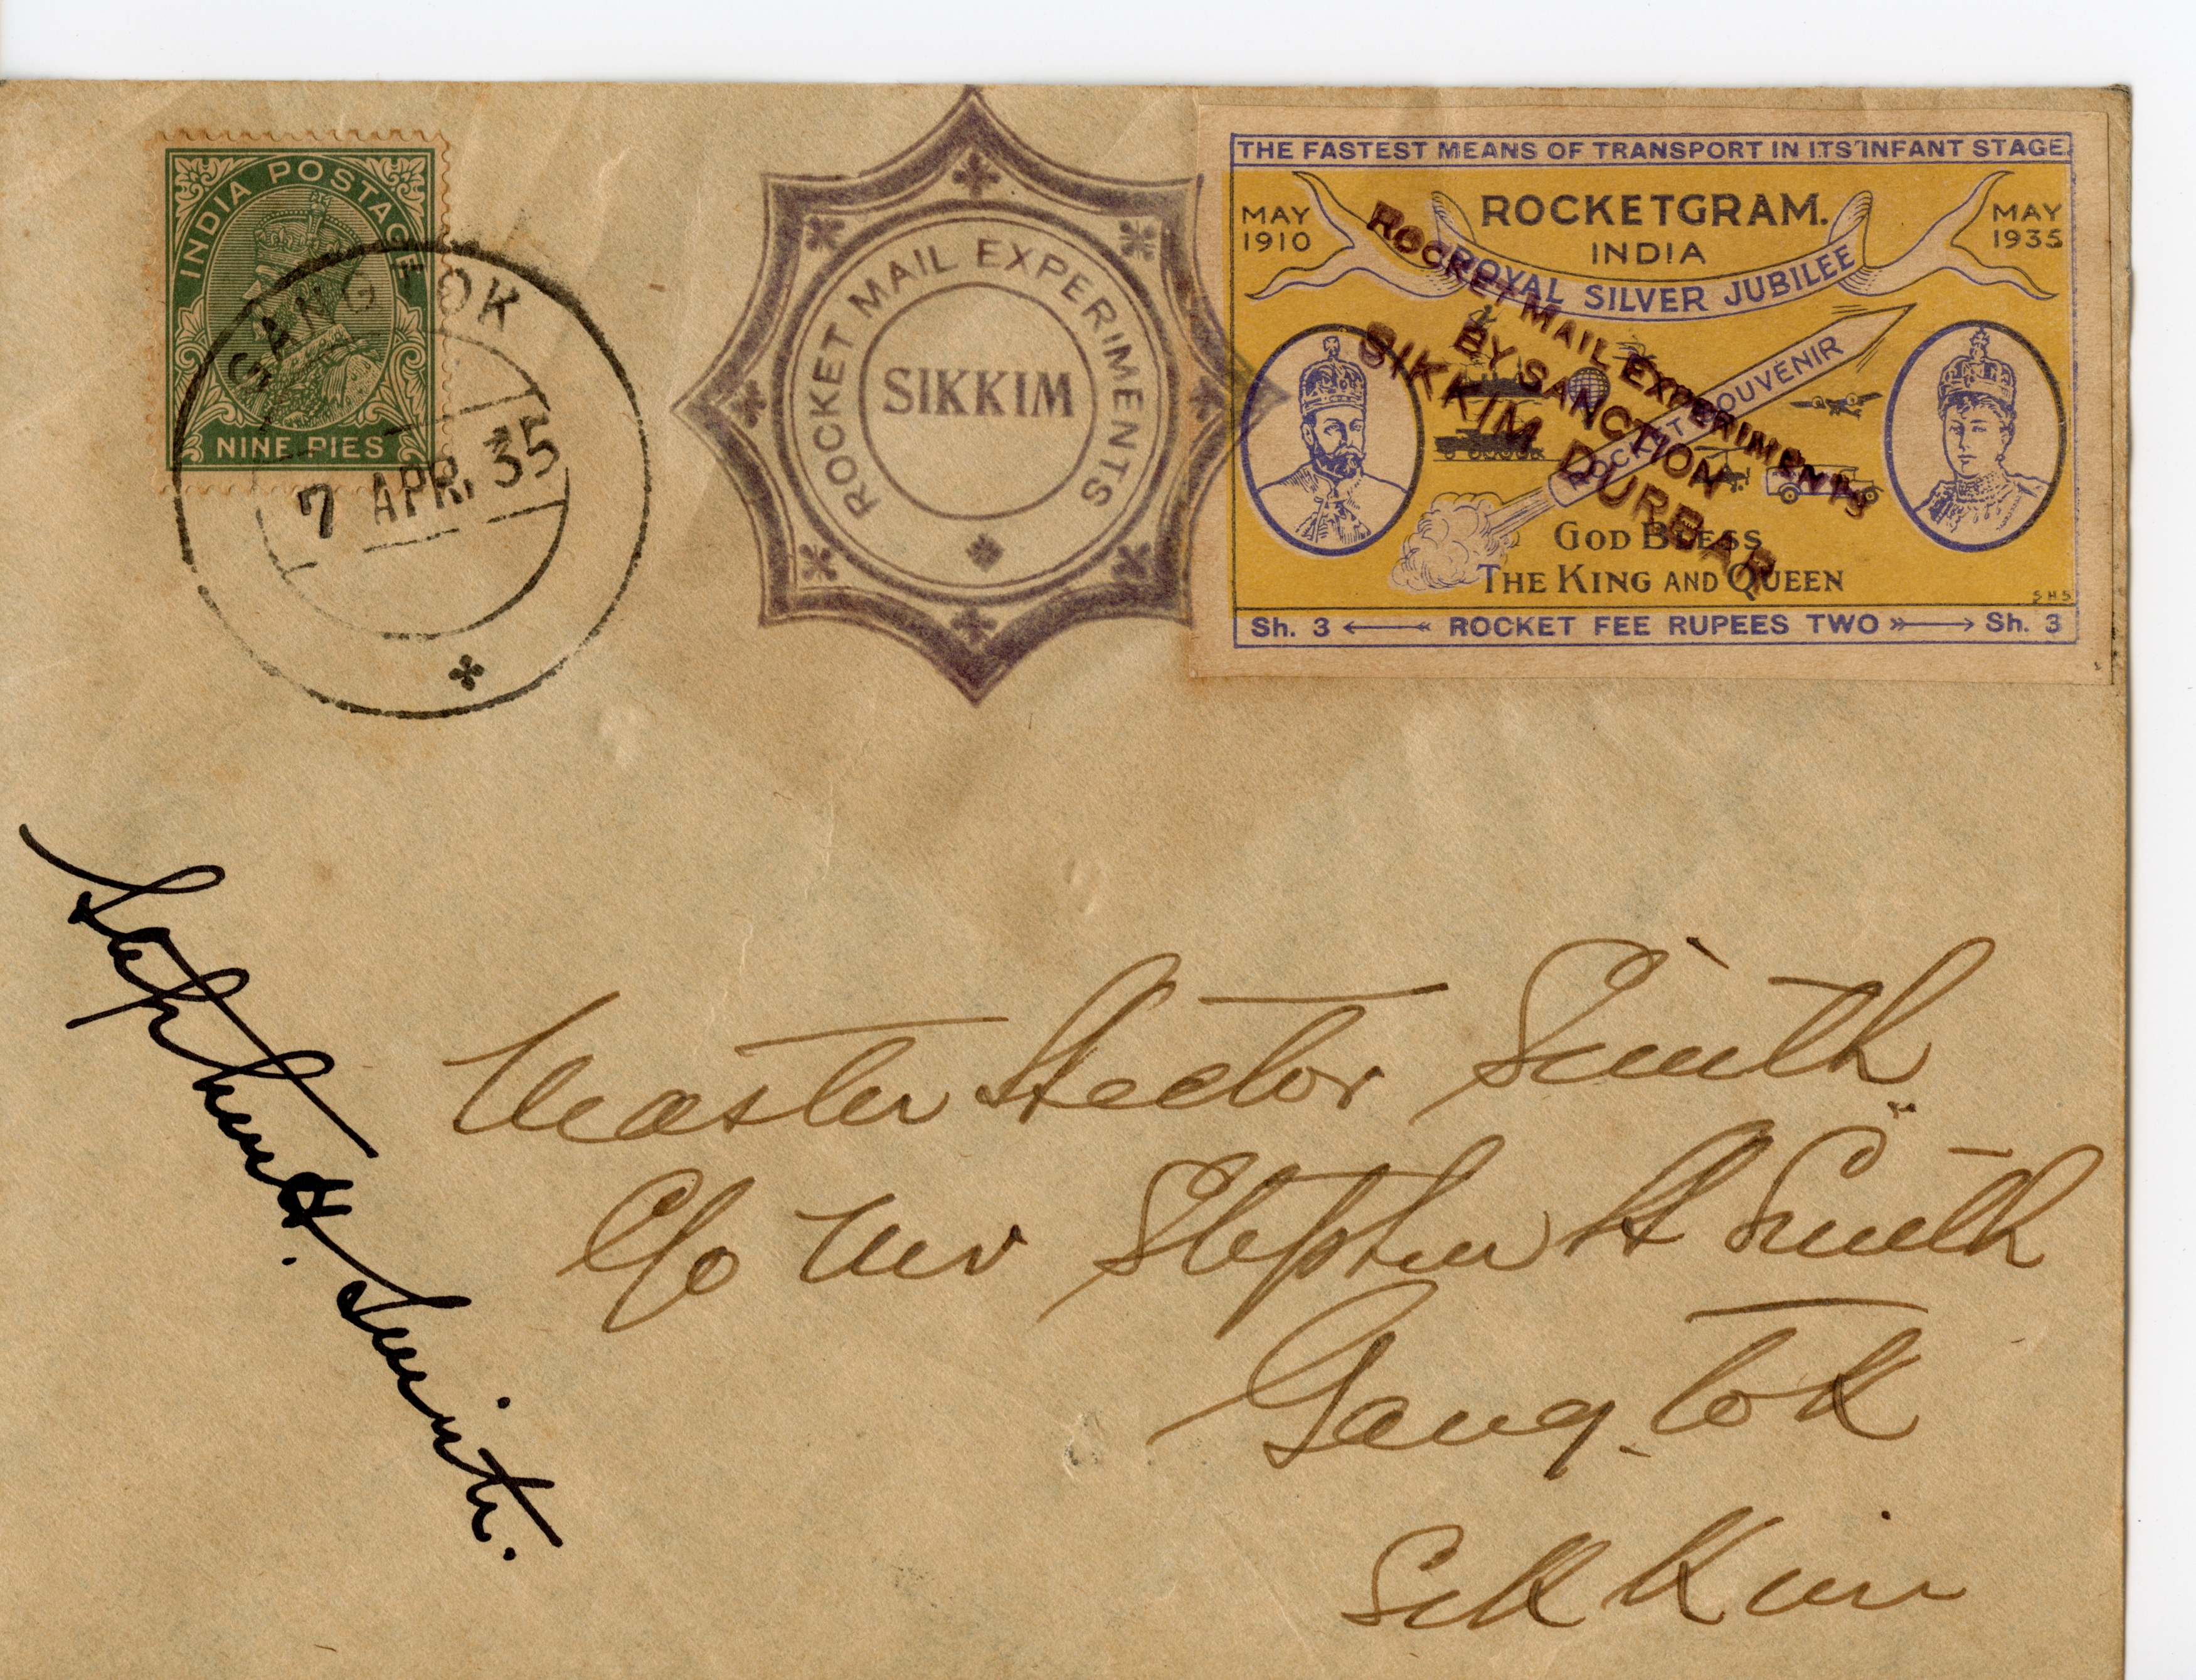 INDIA POSTAGE
NINE PIES
GANGTOK
7 APR. 35
ROCKET MAIL EXPERIMENTS
SIKKIM
THE FASTEST MEANS OF TRANSPORT IN ITS INFANT STAGE.
ROCKETGRAM.
INDIA
MAY
1910
MAY
1935
ROYAL SILVER JUBILEE
ROCKET SOUVENIR
ROCKET MAIL EXPERIMENTS
BY SANCTION
SIKKIM DURBAR
GOD BLESS
THE KING AND QUEEN
SHS
Sh. 3 ROCKET FEE RUPEES TWO Sh. 3
Stephen H. Smith.
Master Hector Smith
C/o Mr Stephen H Smith
Gangtok
Sikkim